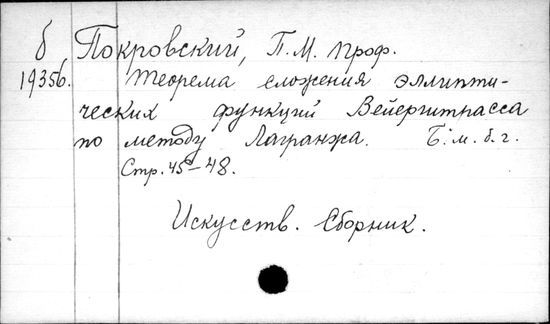 б Покровский, П.М. проф.
19356. Теорема сложения эллипти-
ческих функций Вейерштрасса
по методу Лагранжа. Б.м.б.г.
Стр. 45-48.
Искусств. Сборник.